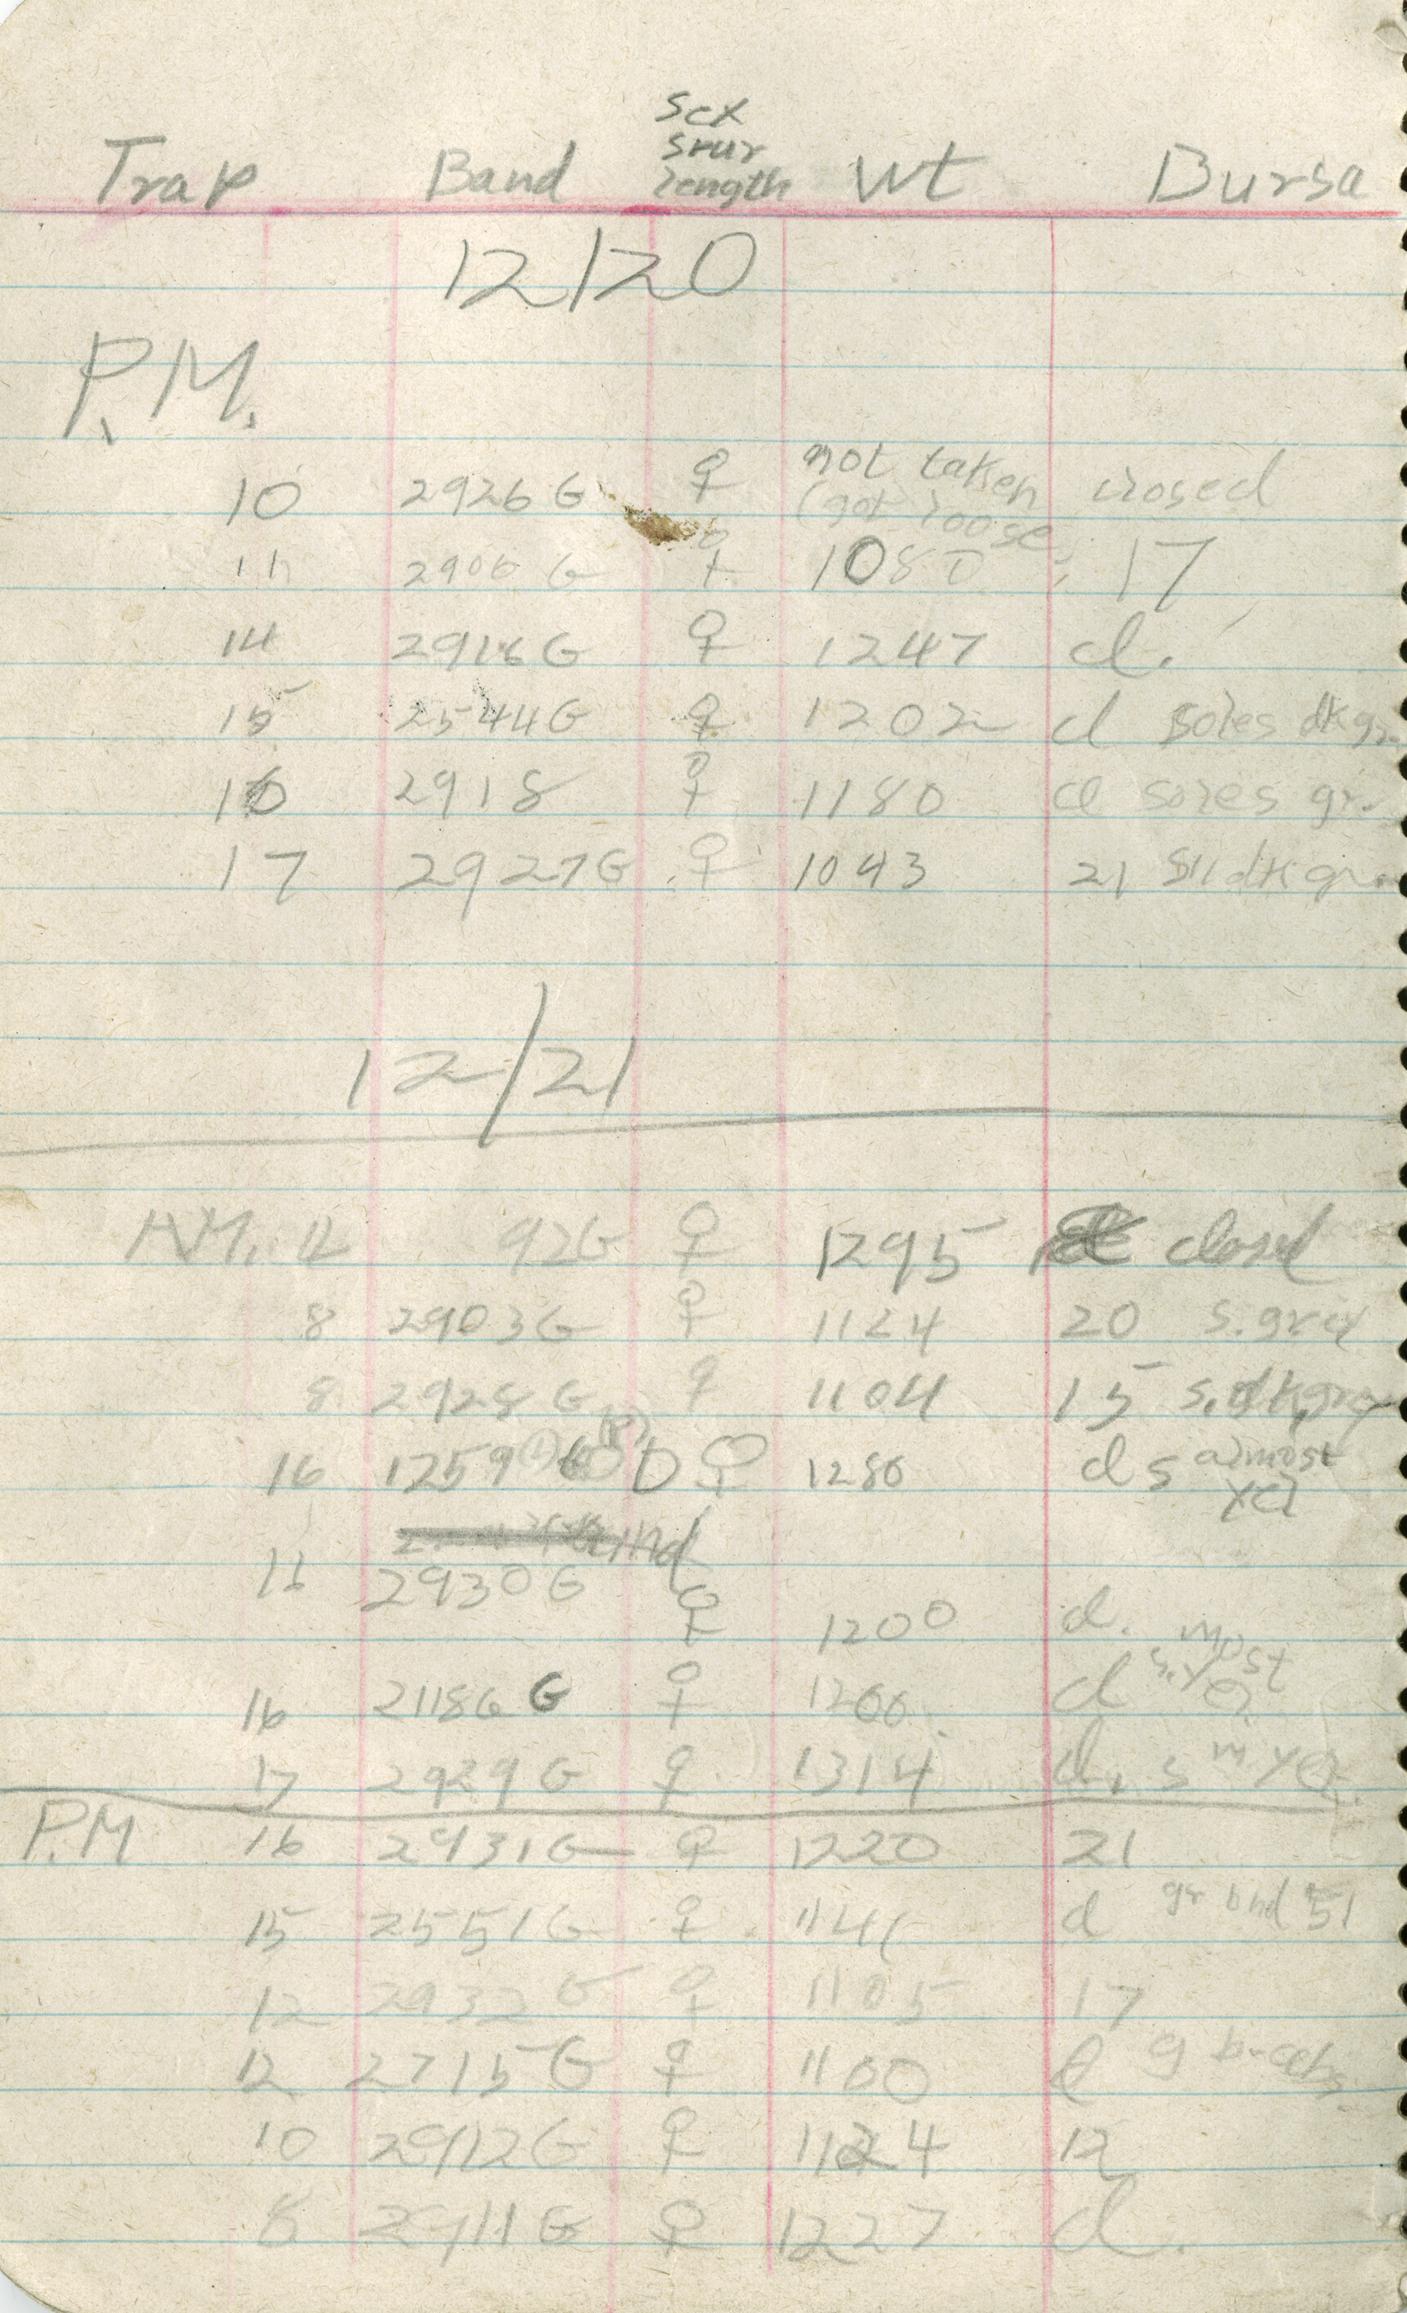 Sex
spur
Trap Band length Wt Bursa
12/20
P.M.
10 2926 G ♀ not taken (got loose closed
11 2906 G ♀ 1080 17
14 2916 G ♀ 1247 cl.
15 2544 G ♀ 1202 cl soles dk gr.
16 2918 ♀ 1180 cl soles gr.
17 2927 G ♀ 1093 21 dk gr.
12/21
A.M. 12 92G ♀ 1295 closed
8 2903 G ♀ 1124 20 s. grey
8 2928 G ♀ 1104 15 s. dk grey
16 1259 D ♀ 1280 cl s almost yel
16 2930 G
♀ 1200 cl.
16 21186 G ♀ 1200 cl s. most yel
17 2929 G ♀ 1314 cl. s m yel.
P.M 16 2931 G ♀ 1220 21
15 2551 G ♀ cl gr bnd 51
12 2932 G ♀ 1105 17
12 2715 G ♀ 1100 cl g
10 2912 G ♀ 1124 12
8 2911 G ♀ 1227 cl.